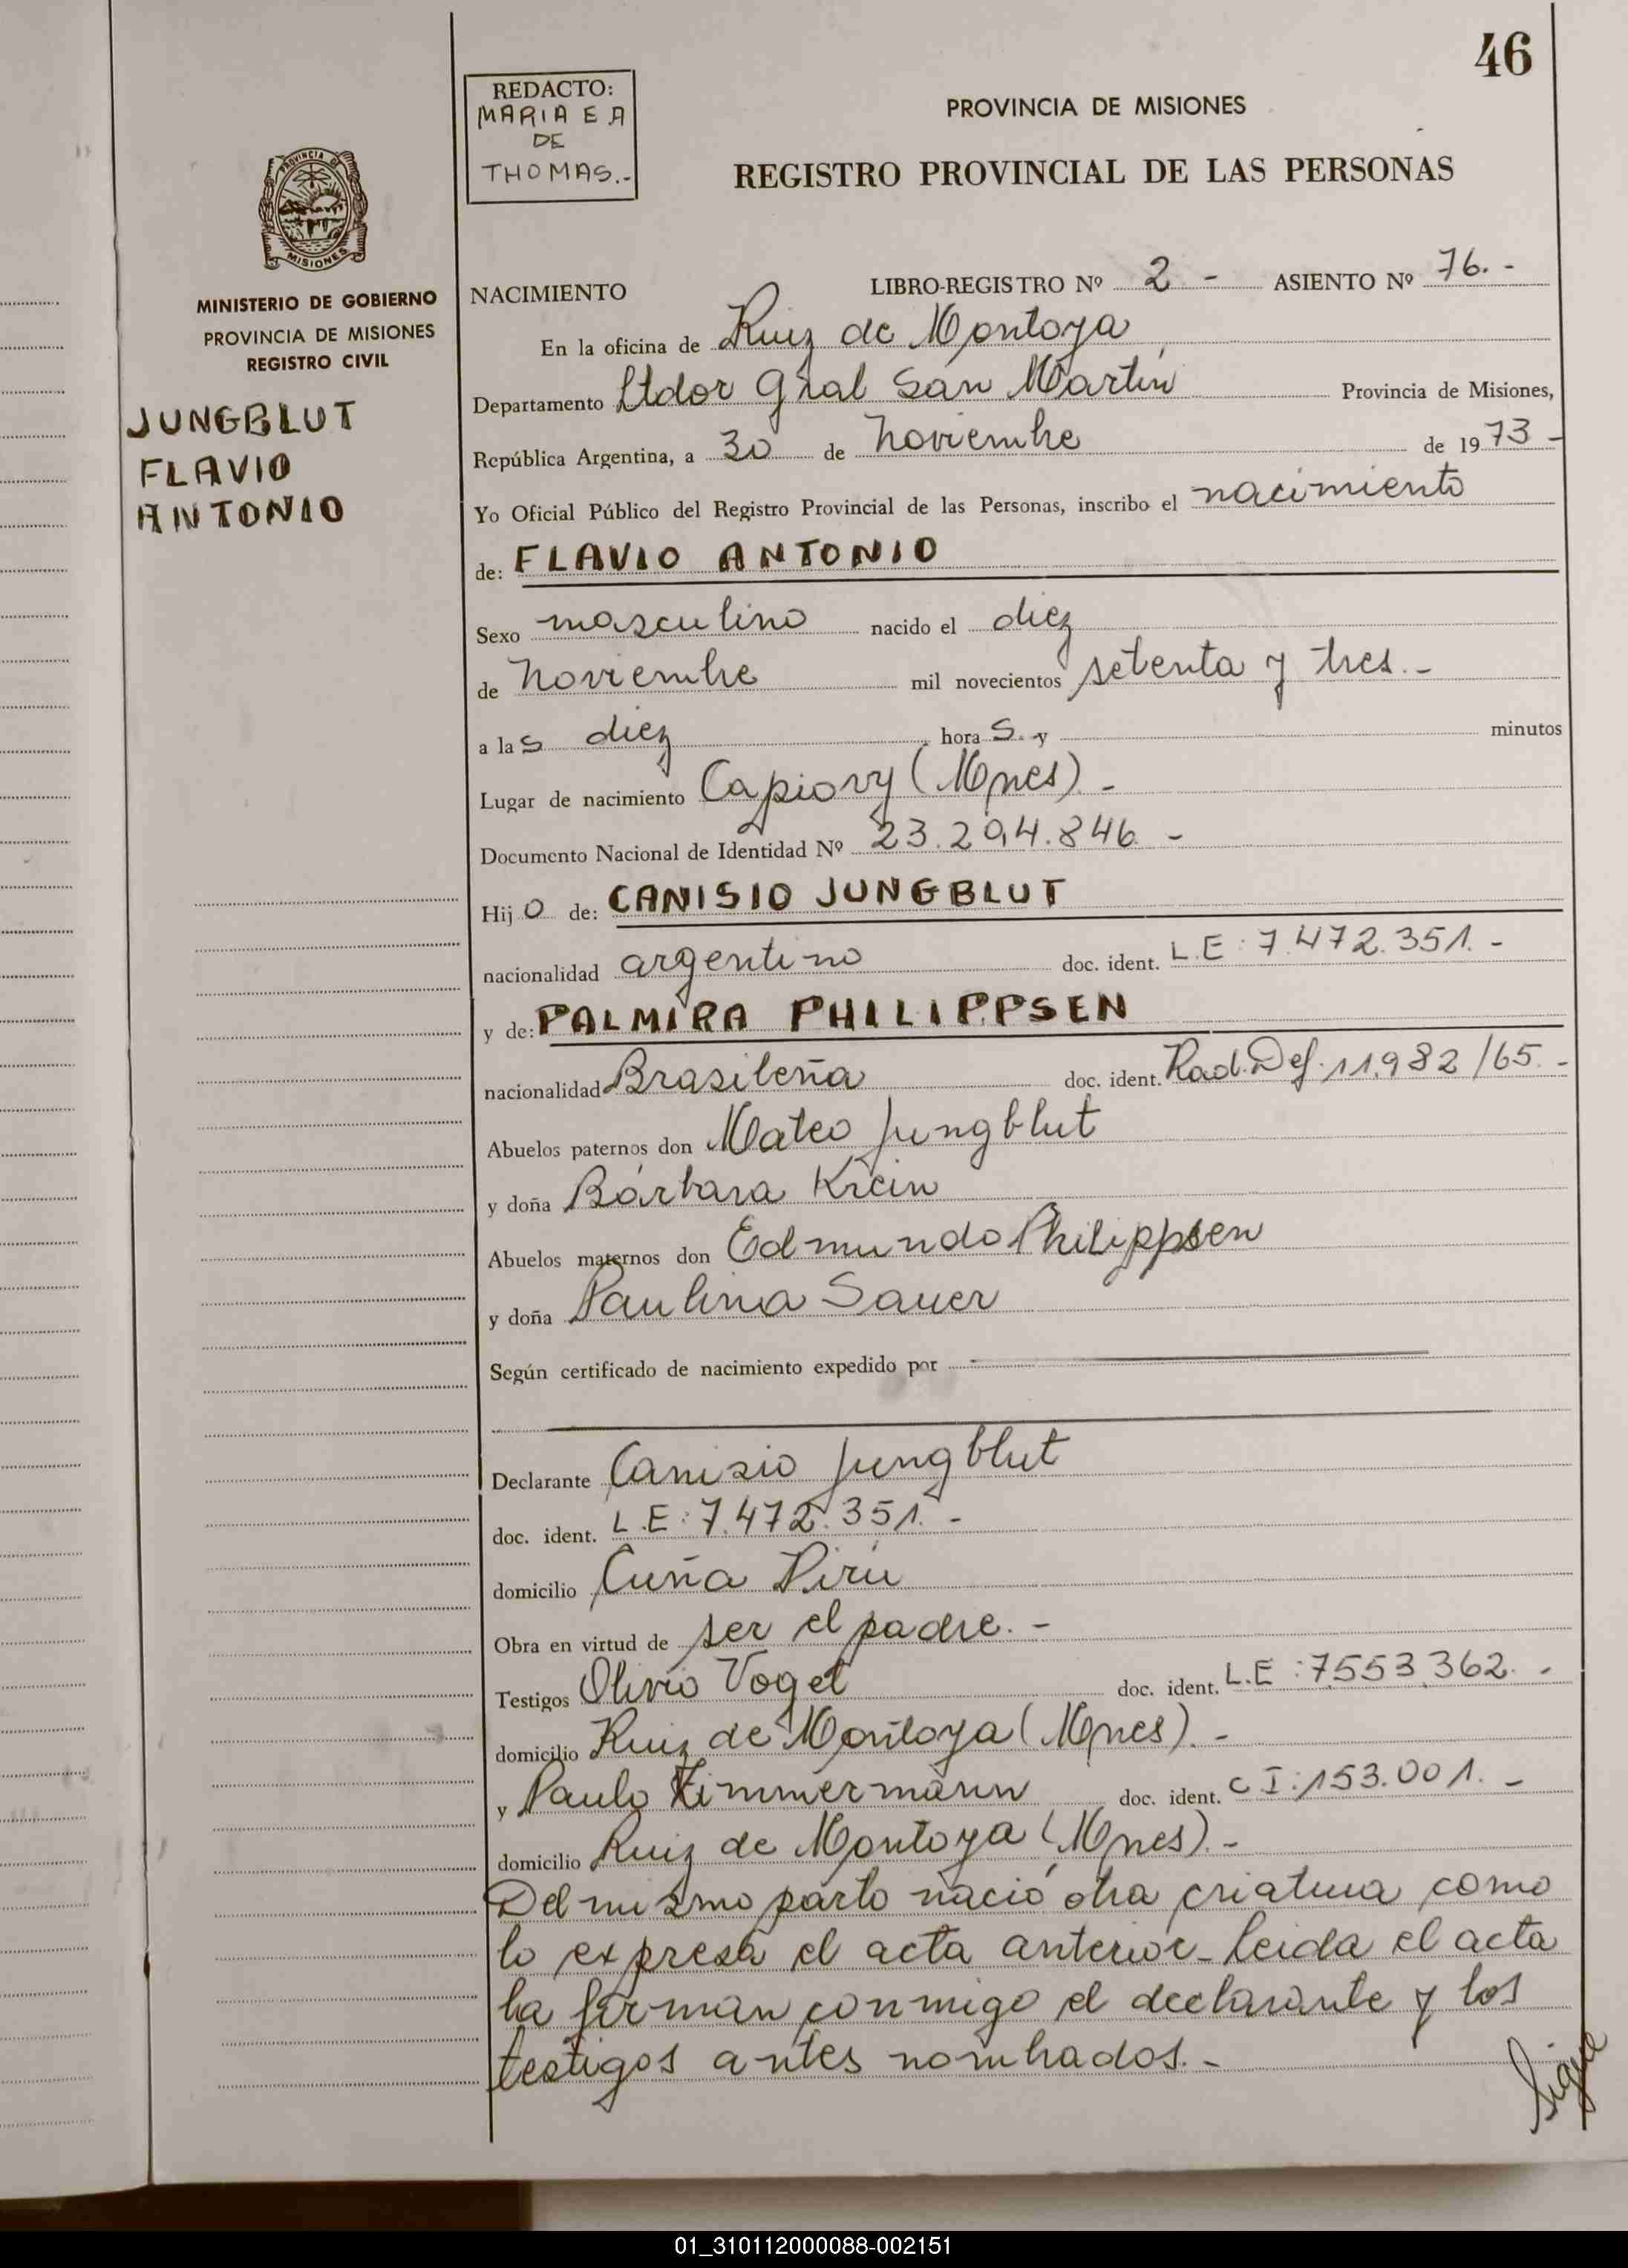 46
REDACTO:
MARIA E A
DE
THOMAS.-
PROVINCIA DE MISIONES
REGISTRO PROVINCIAL DE LAS PERSONAS
PROVINCIA DE
MISIONES
MINISTERIO DE GOBIERNO
PROVINCIA DE MISIONES
REGISTRO CIVIL
JUNGBLUT
FLAVIO
ANTONIO
NACIMIENTO LIBRO-REGISTRO Nº 2 - ASIENTO Nº 76. -
En la oficina de Ruiz de Montoya
Departamento Ltdor Gral San Martín Provincia de Misiones,
República Argentina, a 30 de noviembre de 1973 -
Yo Oficial Público del Registro Provincial de las Personas, inscribo el nacimiento
de: FLAVIO ANTONIO
Sexo masculino nacido el diez
de noviembre mil novecientos setenta y tres. -
a las diez horas. y minutos
Lugar de nacimiento Capiovy (Mnes). -
Documento Nacional de Identidad Nº 23.294.846. -
Hijo de: CANISIO JUNGBLUT
nacionalidad argentino doc. ident. L.E: 7.472.351. -
y de: PALMIRA PHILIPPSEN
nacionalidad Brasileña doc. ident. Rad. Def. 11.982/65. -
Abuelos paternos don Mateo Jungblut
y doña Bárbara Krein
Abuelos maternos don Edmundo Philippsen
y doña Paulina Sauer
Según certificado de nacimiento expedido por
Declarante Canisio Jungblut
doc. ident. L.E: 7.472.351. -
domicilio Cuña Pirú
Obra en virtud de ser el padre. -
Testigos Olivio Vogel doc. ident. L.E: 7.553.362. -
domicilio Ruiz de Montoya (Mnes). -
y Paulo Zimmermann doc. ident. C I: 153.001. -
domicilio Ruiz de Montoya (Mnes). -
Del mismo parto nació otra criatura como
lo expresa el acta anterior - Leida el acta
la firman conmigo el declarante y los
testigos antes nombrados. -
Sigue
01_310112000088-002151